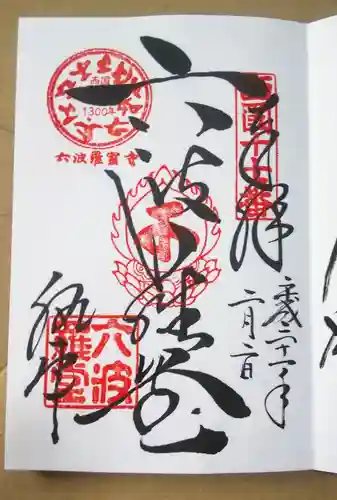 西国十七番
奉拝
平成三十一年
二月二日
六波羅堂
西国
1300年
六波羅蜜寺
六波
羅堂